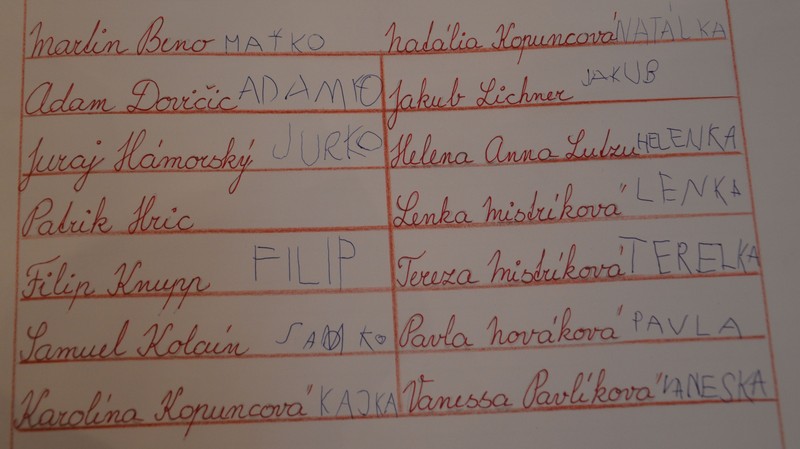 Martin Beno MAŤKO Natália Kopuncová NATÁLKA
Adam Dovičic ADAMKO Jakub Lichner JAKUB
Juraj Hámorský JURKO Helena Anna Lutzu HELENKA
Patrik Hric Lenka Mistríková LENKA
Filip Knupp FILIP Tereza Mistríková TERELKA
Samuel Kolcún SAMKO Pavla Nováková PAVLA
Karolína Kopuncová KAJKA Vanessa Pavlíková VANESKA